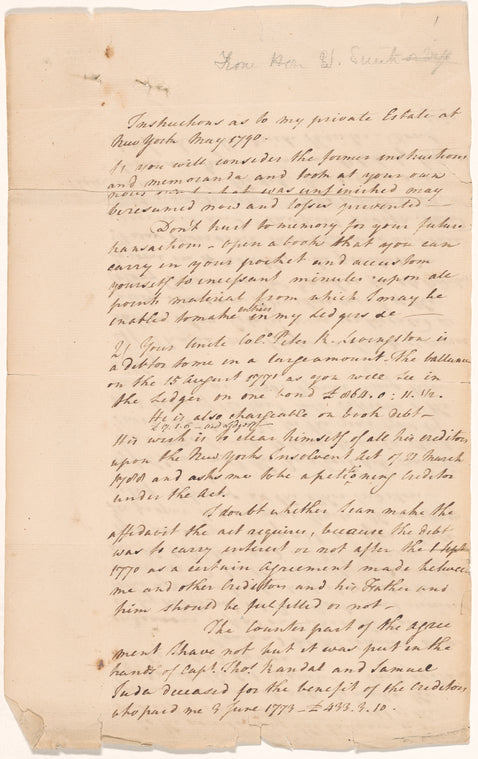 1
From Hon W. Smith
Instructions as to my private Estate at
New York May 1790.
1, you will consider the former instructions
and memoranda and look at your own
that was unfinished may
be resumed now and losses prevented —
Don't trust to memory for your future
transactions — open a book that you can
carry in your pocket and accustom
yourself to incessant minutes upon all
points material from which I may be
enabled to make entries in my Ledgers &c —
2) Your Uncle Colo. Peter R. Livingston is
a debtor to me in a large amount. The ballance
on the 15 August 1771 as you will see in
the Ledger on one bond £864. 0: 11. 1/2.
He is also chargeable on book debt —
His wish is to clear himself of all his creditors
upon the New York Insolvent Act of 21 March
1788 and asks me to be a petitioning creditor
under the Act.
I doubt whether I can make the
affidavit the act requires, because the debt
was to carry interest or not after the 1 Septr
1770 as a certain agreement made between
me and other Creditors and his Father and
him should be fulfilled or not —
The Counterpart of the agree
ment I have not but it was put in the
hands of Capt. Thos. Randal and Samuel
Juda deceased for the benefit of the Creditors
who paid me 3 June 1773 — £433. 3. 10.